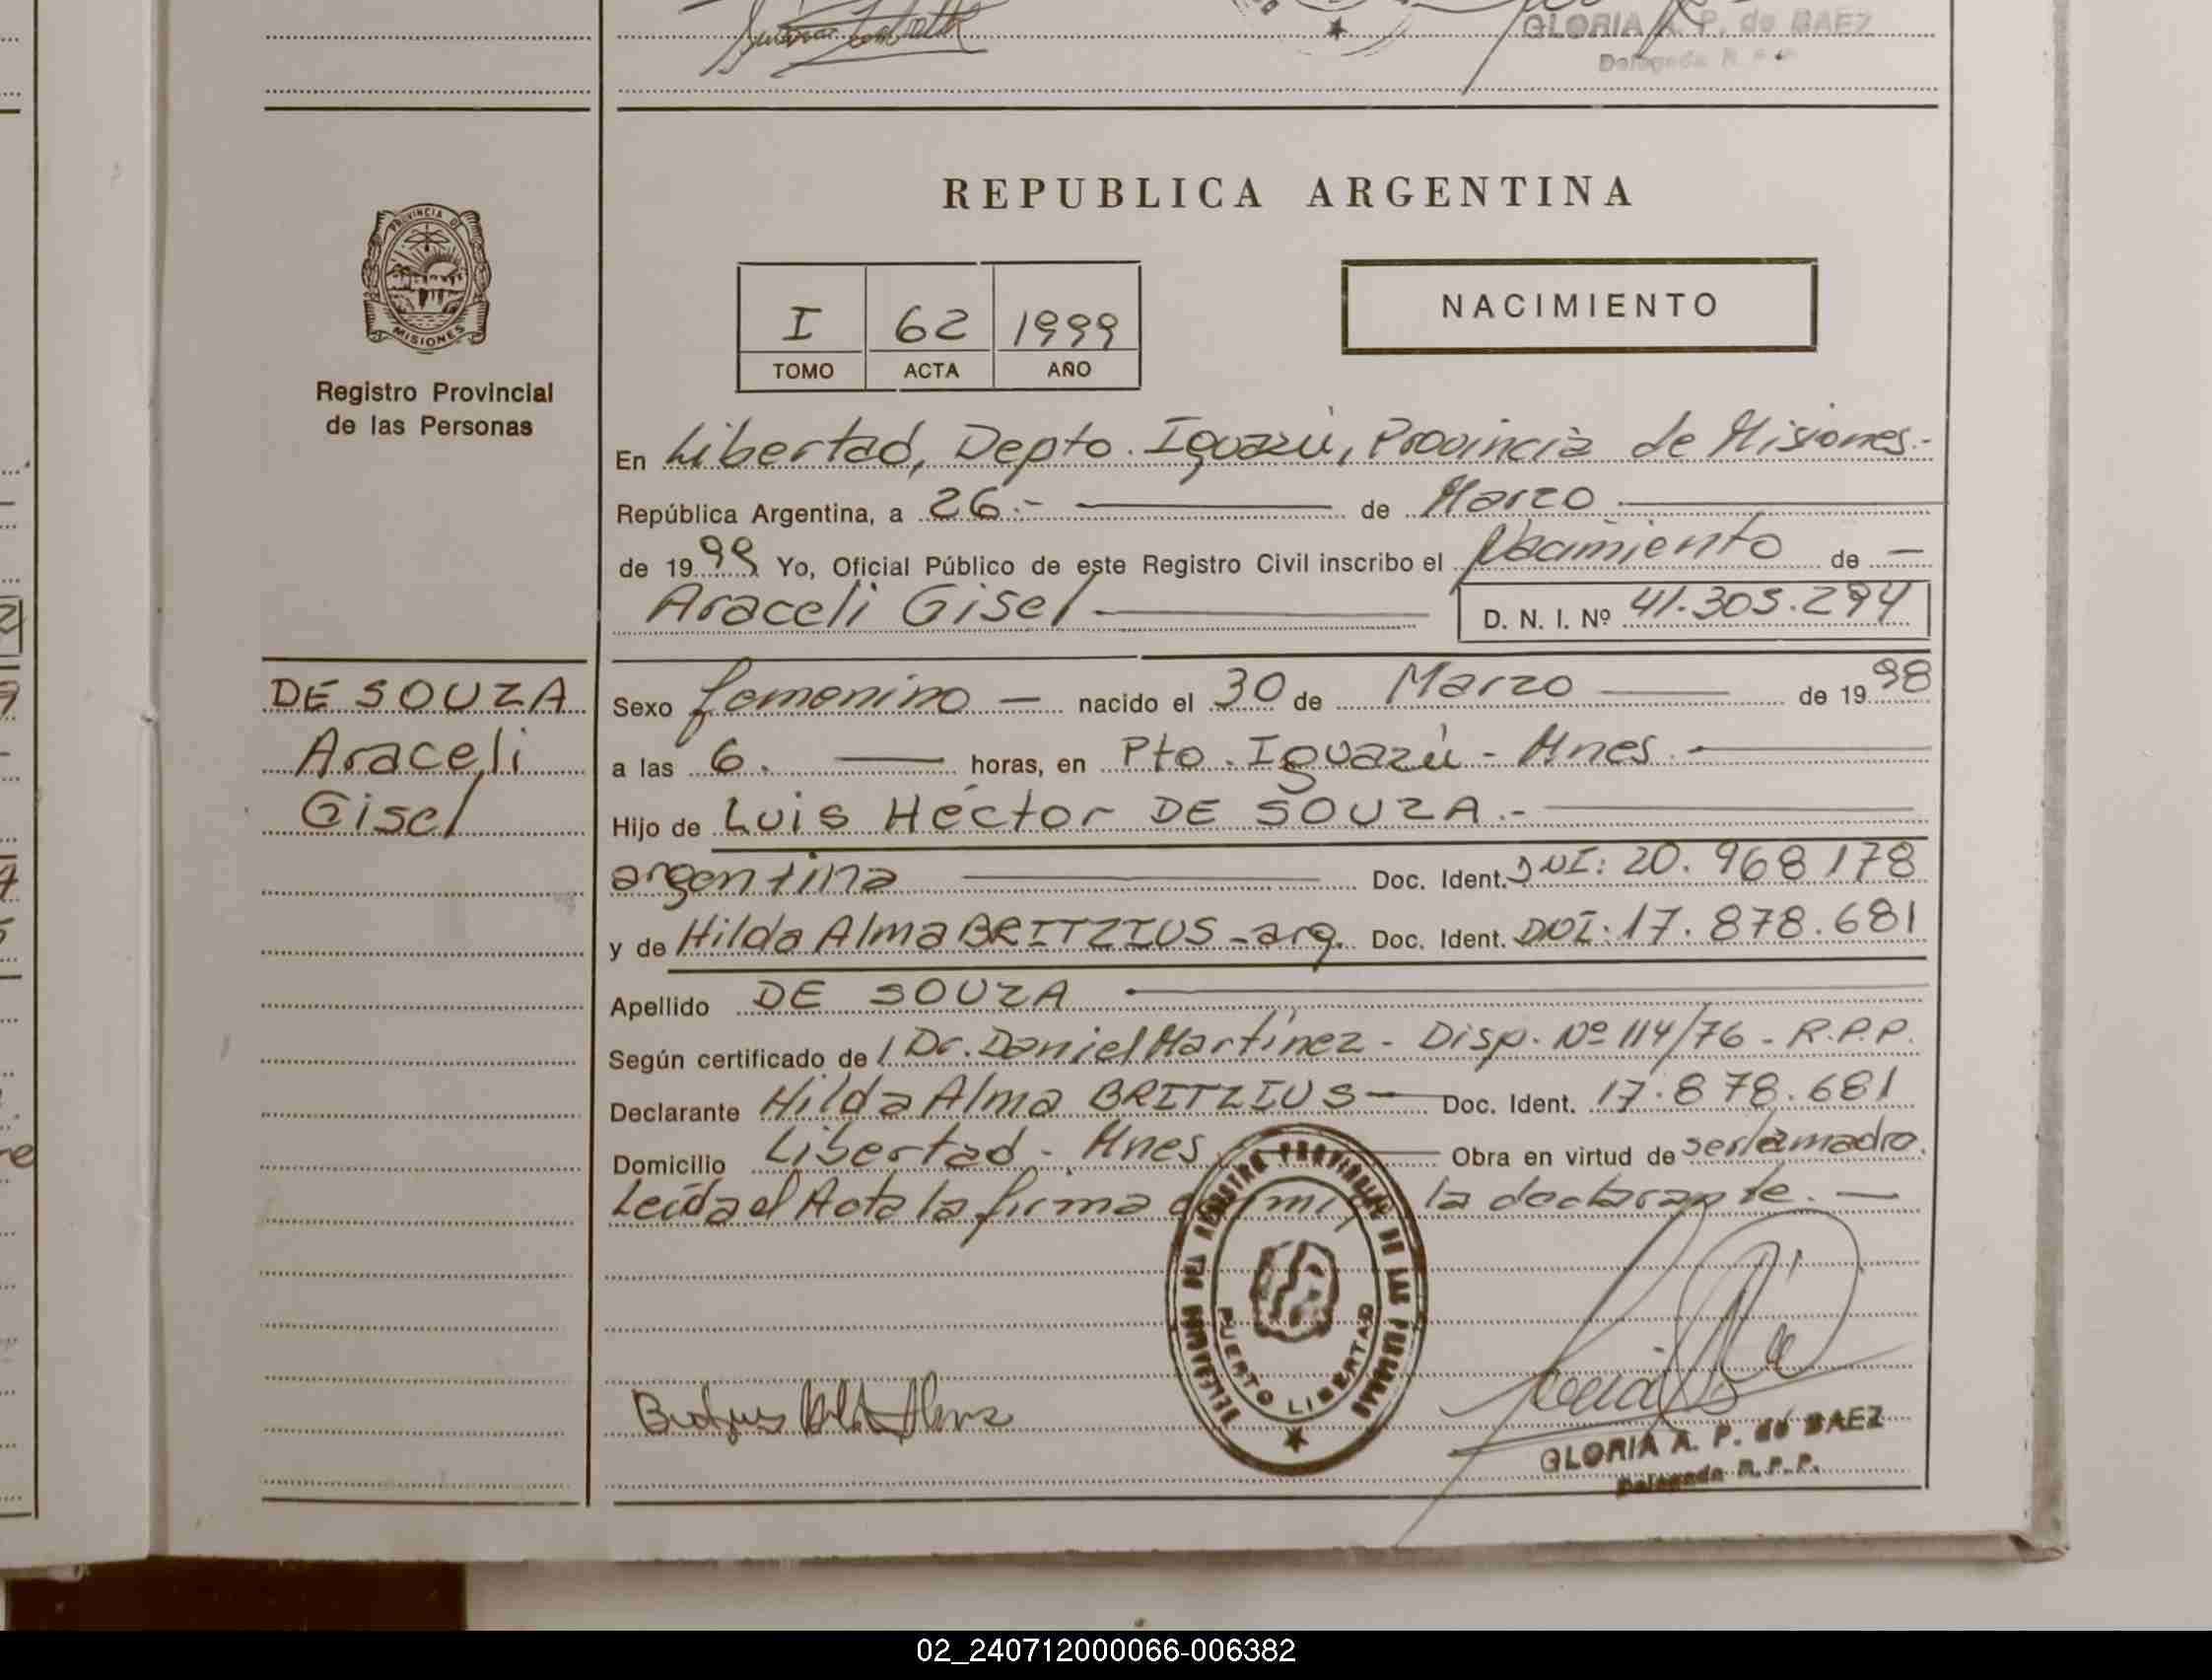 GLORIA A. P. de BAEZ
Delegada R.
PROVINCIA DE
MISIONES
Registro Provincial
de las Personas
REPUBLICA ARGENTINA
I 62 1999
TOMO ACTA AÑO
NACIMIENTO
En Libertad, Depto. Iguazú, Provincia de Misiones.-
República Argentina, a 26.- de Marzo
de 1999 Yo, Oficial Público de este Registro Civil inscribo el Nacimiento de —
Araceli Gisel D. N. I. Nº 41.305.294
DE SOUZA
Araceli
Gisel
Sexo femenino — nacido el 30 de Marzo — de 1998
a las 6. — horas, en Pto. Iguazú - Mnes. —
Hijo de Luis Héctor DE SOUZA.-
argentina — Doc. Ident. DNI: 20.968178
y de Hilda Alma BRITZIUS - arg. Doc. Ident. DNI: 17.878.681
Apellido DE SOUZA
Según certificado de Dr. Daniel Martínez - Disp. Nº 114/76 - R.P.P.
Declarante Hilda Alma BRITZIUS — Doc. Ident. 17.878.681
Domicilio Libertad - Mnes. Obra en virtud de ser la madre.
Leída el Acta la firma la declarante. —
DELEGACION DEL REGISTRO PROVINCIAL DE LAS PERSONAS
PUERTO LIBERTAD
GLORIA A. P. de BAEZ
Delegada R. P. P.
02_240712000066-006382